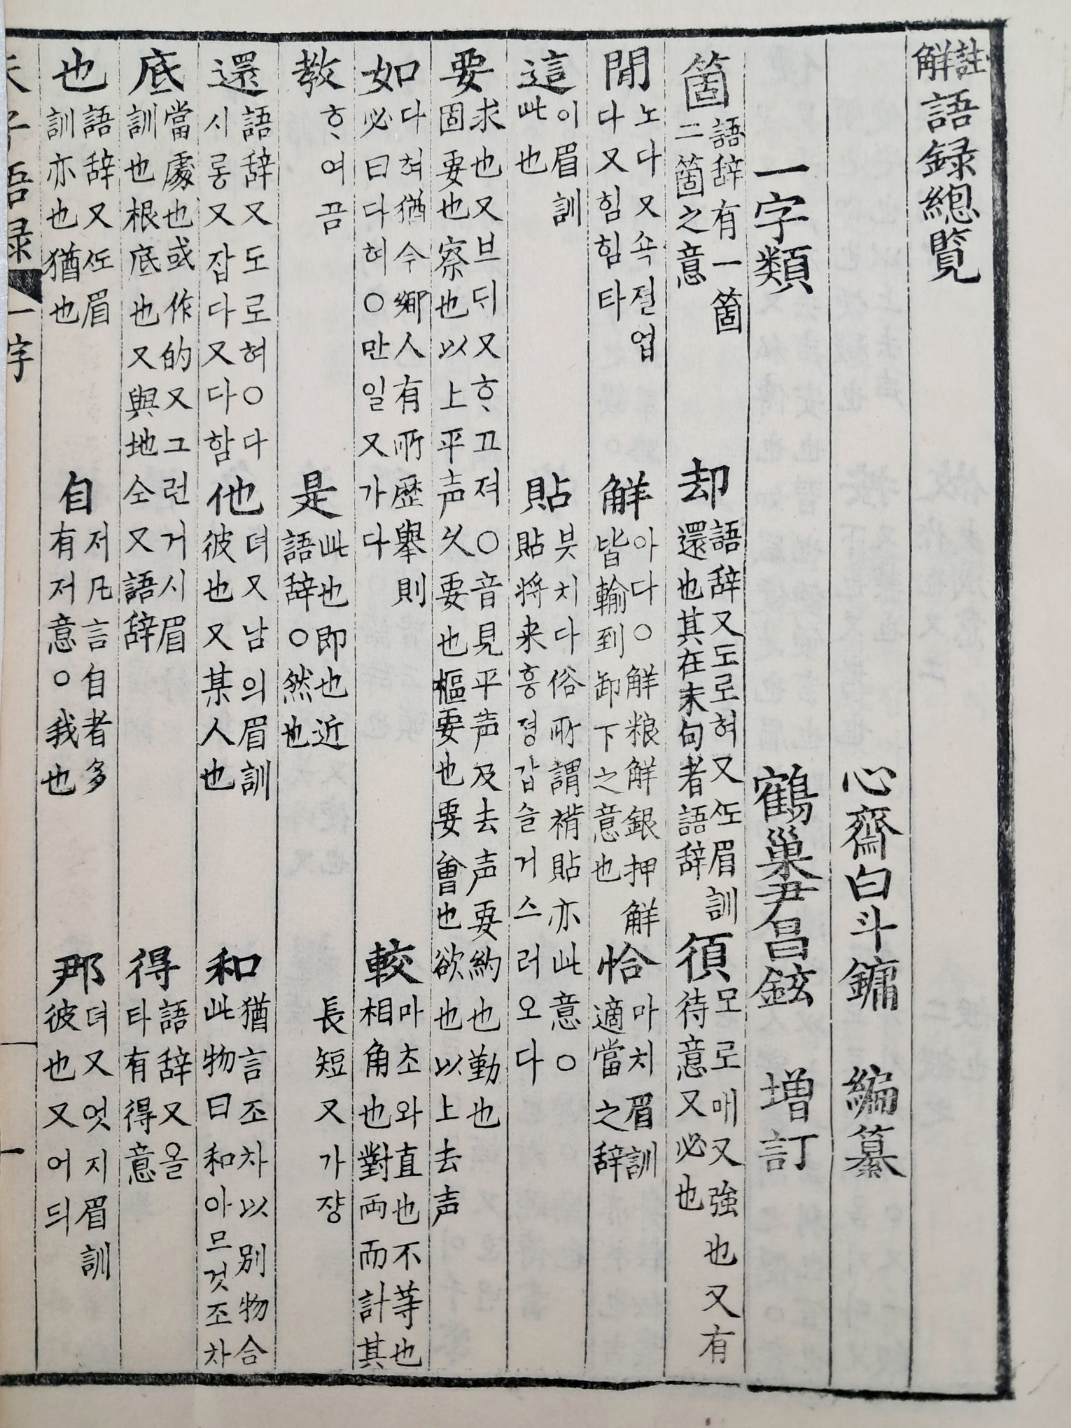 註解語録總覽
心齋白斗鏞 編纂
一字類 鶴巢尹昌鉉 増訂
箇 語辞有一箇二箇之意 却 語辞又도로혀又仾眉訓還也其在末句者語辞 須 모로매又強也又有待意又必也
閒 노다又쇽졀업다又힘힘타 解 아다○解粮解銀押解皆輸到卸下之意也 恰 마치眉訓適當之辞
這 이眉訓此也 貼 븟치다俗所謂褙貼亦此意○貼将来흥졍갑슬거스러오다
要 求也又브듸又ᄒᆞ고져○音見平声及去声要約也勤也固要也察也以上平声久要也樞要也要會也欲也以上去声
如 다혀猶今鄉人有所歷擧則必曰다혀○만일又가다 較 마초와直也不等也相角也對両而計其長短又가쟝
教 ᄒᆞ여곰 是 此也即也近語辞○然也
還 語辞又도로혀○다시롱又잡다又다함 他 뎌又남의眉訓彼也又某人也 和 猶言조차以别物合此物曰和아므것조차
底 當處也或作的又그런거시眉訓也根底也又與地仝又語辞 得 語辞又올타有得意
也 語辞又仾眉訓亦也猶也 自 저凡言自者多有저意○我也 那 뎌又엇지眉訓彼也又어듸
朱子語録 一字 一